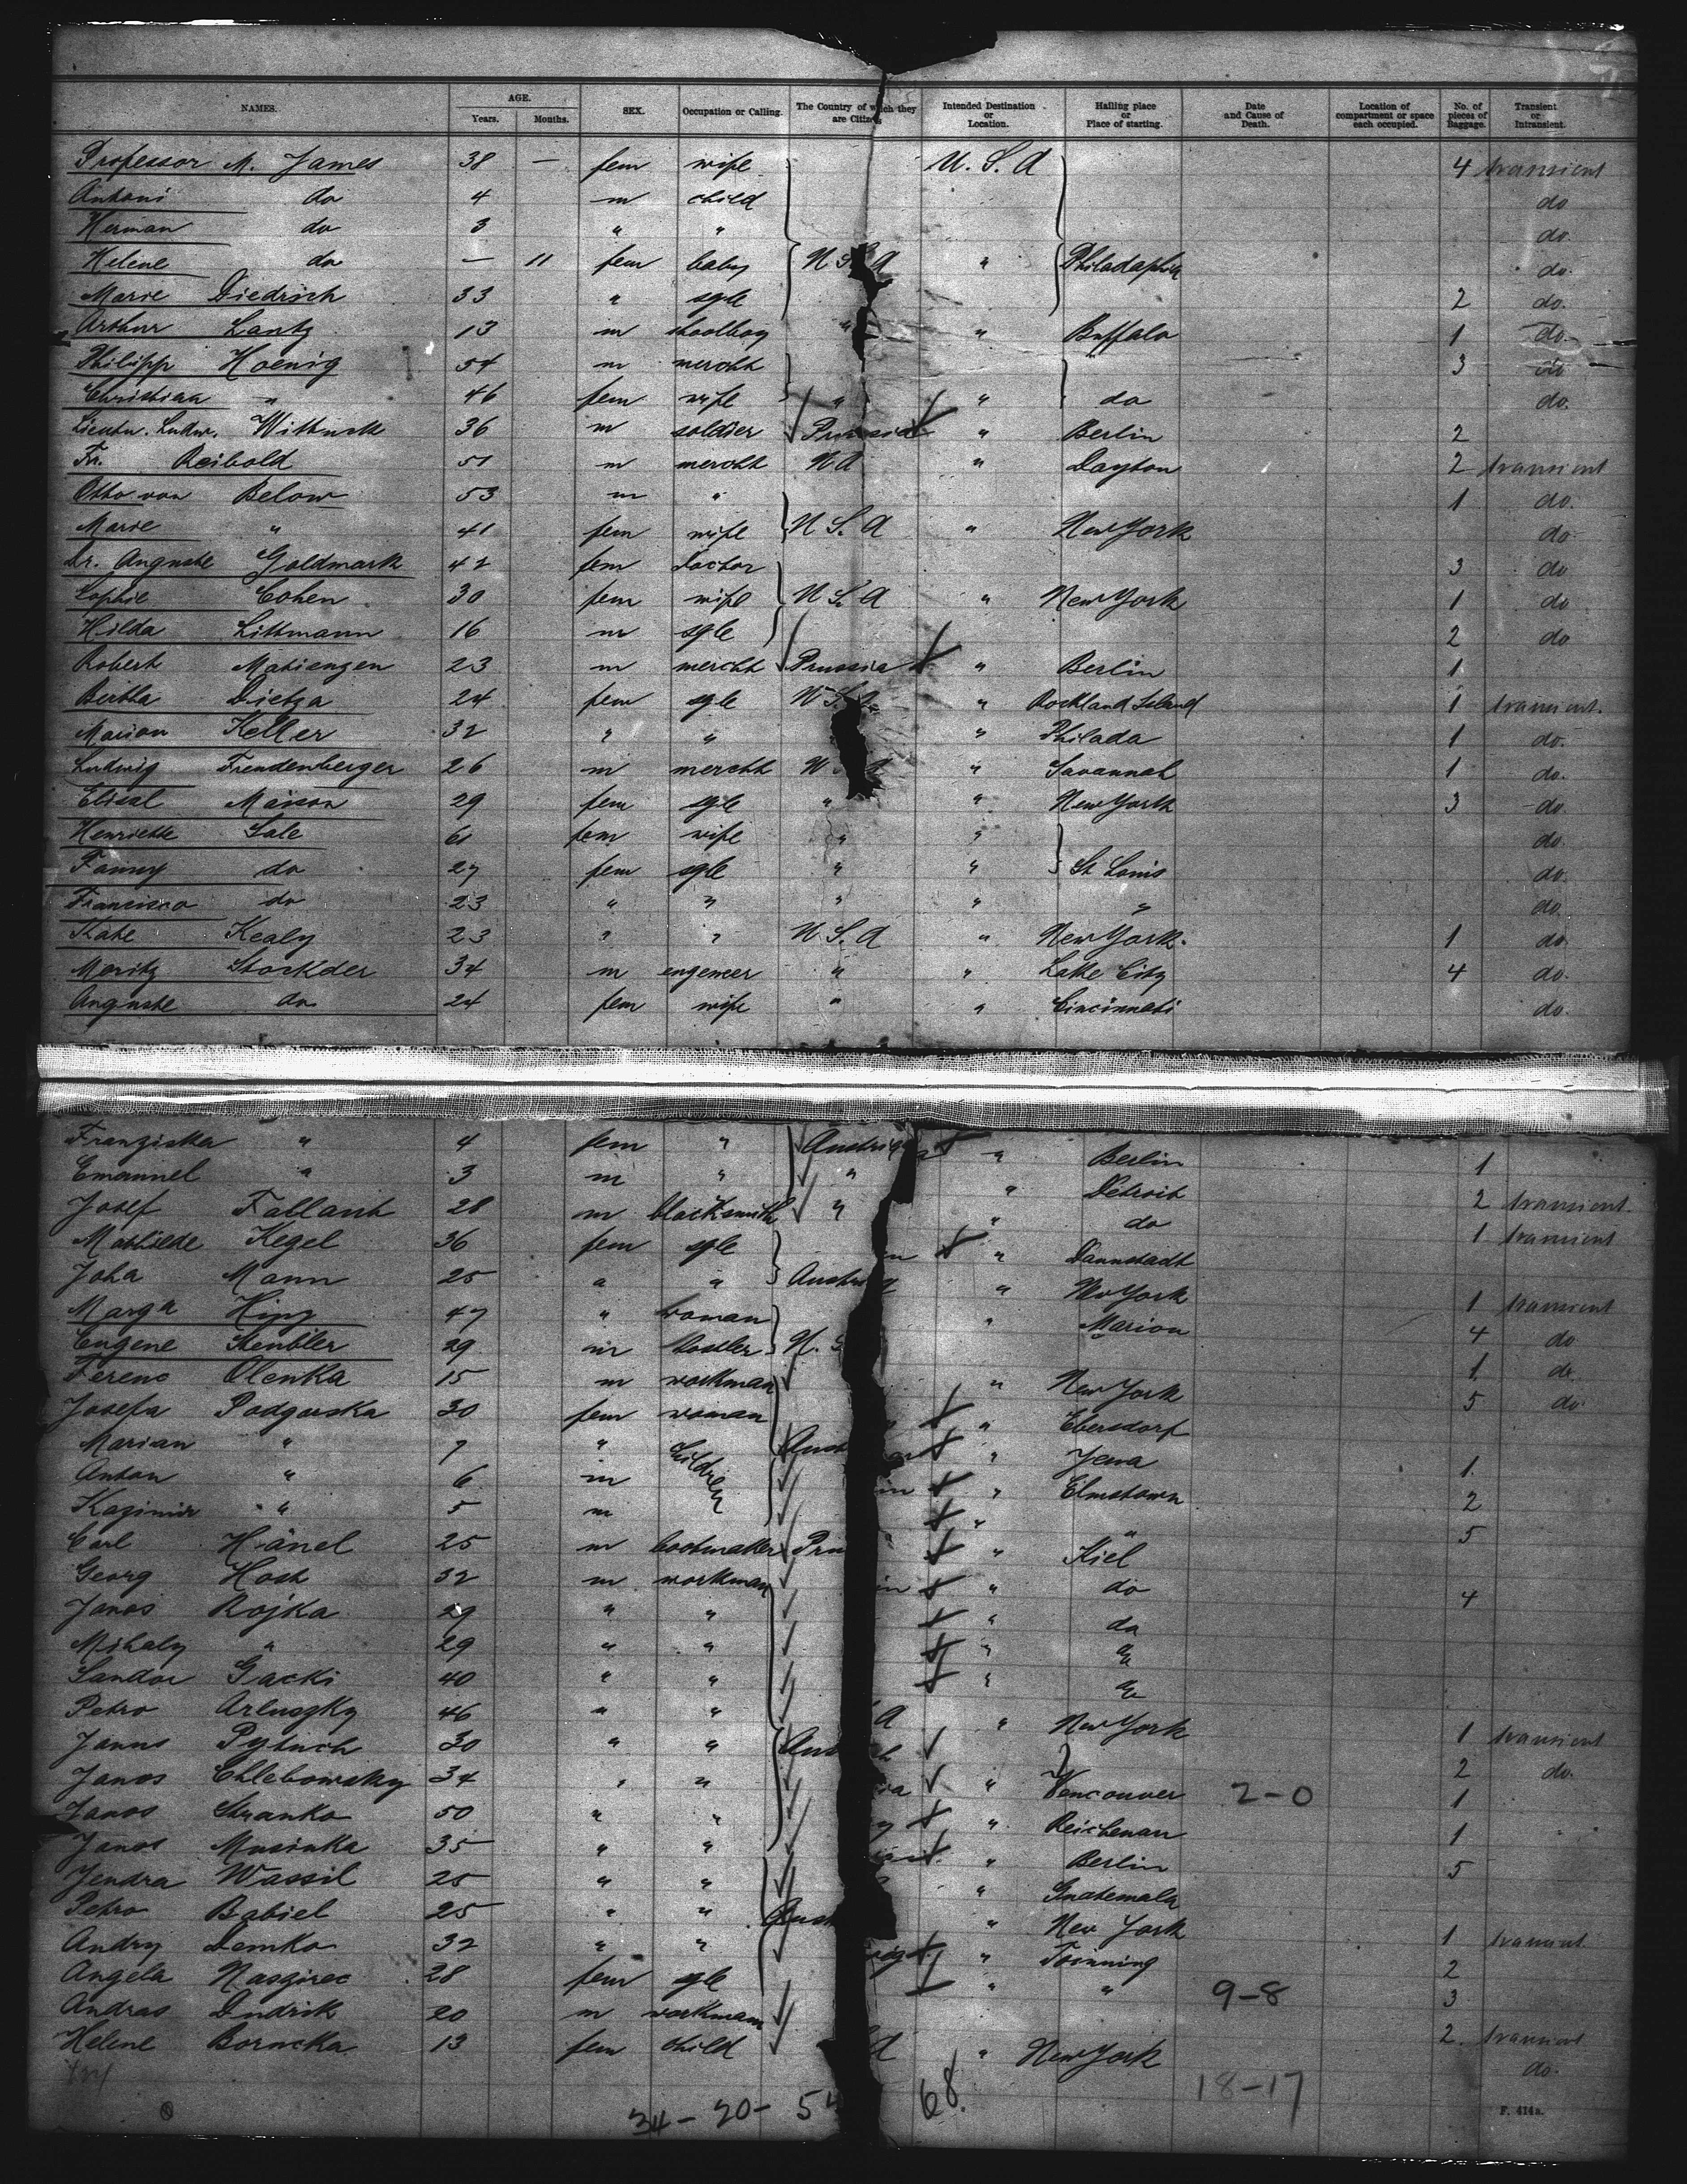 NAMES. AGE. Years. Months. SEX. Occupation or Calling. The Country of which they are Citizens Intended Destination or Location. Hailing place or Place of starting. Date and Cause of Death. Location of compartment or space each occupied. No. of pieces of Baggage. Transient or Intransient.
Professor M. James 38 — fem wife U. S. A 4 transient
Antoni do 4 m child do
Herman do 3 " " do
Helene do — 11 fem baby U S A " Philadaphia do.
Marie Diedrich 33 " sgle 2 do.
Arthur Lantz 13 m shoolboy " " Buffalo 1 do.
Philipp Hoenig 54 m mercht 3 do
Christian " 46 fem wife " " do do.
Lieutn. Ludw. 36 m soldier Prussia " Berlin 2
Fr. Reibold 51 m mercht " Dayton 2 transient
Otto von Below 53 m " 1 do.
Marie " 41 fem wife U S. A " New York do
Dr. Auguste Goldmark 42 fem doctor 3 do
Sophie Cohen 30 fem wife U S. A " New York 1 do
Hilda Littmann 16 m sgle 2 do
Robert Matiengen 23 m mercht Prussia " Berlin 1
Bertha Dietza 24 fem sgle " Rockland Island 1 transient.
Marion Keller 32 " " " Philada 1 do.
Ludwig Freudenberger 26 m mercht " Savannah 1 do.
Maison 29 fem sgle " " New York 3 do.
Henriette Sale 61 fem wife " " do.
Fanny do 27 fem sgle " " St Louis do.
Francisca do 23 " " " " " do.
Kate Kealy 23 " " U S. A " New York. 1 do.
Moritz Stockder 34 m engeneer " " Lake City 4 do.
Auguste do 24 fem wife " " Cincinnati do.
Franziska " 4 fem " Austria " Berlin 1
Emanuel " 3 m " " " Detroit 2 transient.
Josef Fallant 28 m blacksmith " " do 1 transient
Mathilde Kegel 36 fem sgle " Darmstadt
Joha Mann 25 " " Austria " New York 1 transient
Marga 47 " woman " Marion 4 do
Eugene Steubler 29 m U. S 1 do
Ferenc Olenka 15 m workman " New York 5 do
Josefa Podgorska 30 fem woman " Ebersdorf
Marian " 7 " Aust " Jena 1.
Anton " 6 m children " Elmstown 2
Kazimir " 5 m " " 5
Carl Hänel 25 m bootmaker Pru " Kiel
Georg Hosh 32 m workman " do 4
Janos Rojka 29 " " " do
Mihaly " 29 " " "
Sandor Gacki 40 " " "
Petro Arluszky 46 " " A " New York 1 transient
Janus Pytuch 30 " " Aust 2 do.
Janos Chlebowsky 34 " " " Vancouver 2-0 1
Janos Stranko 50 " " " Reichenau 1
Janos Musinka 35 " " " Berlin 5
Jendra Wassil 25 " " " Guatemala
Petro Babiel 25 " " Aust " New York 1 transient
Andry Demko 32 " " " Toinning 2
Angela Naszirec 28 fem sgle " " 9-8 3
Andras Dudrik 20 m workman 2. transient
Helene Borncka 13 fem child A " New York do.
34 - 20 - 54 68. 18-17
F. 414a.